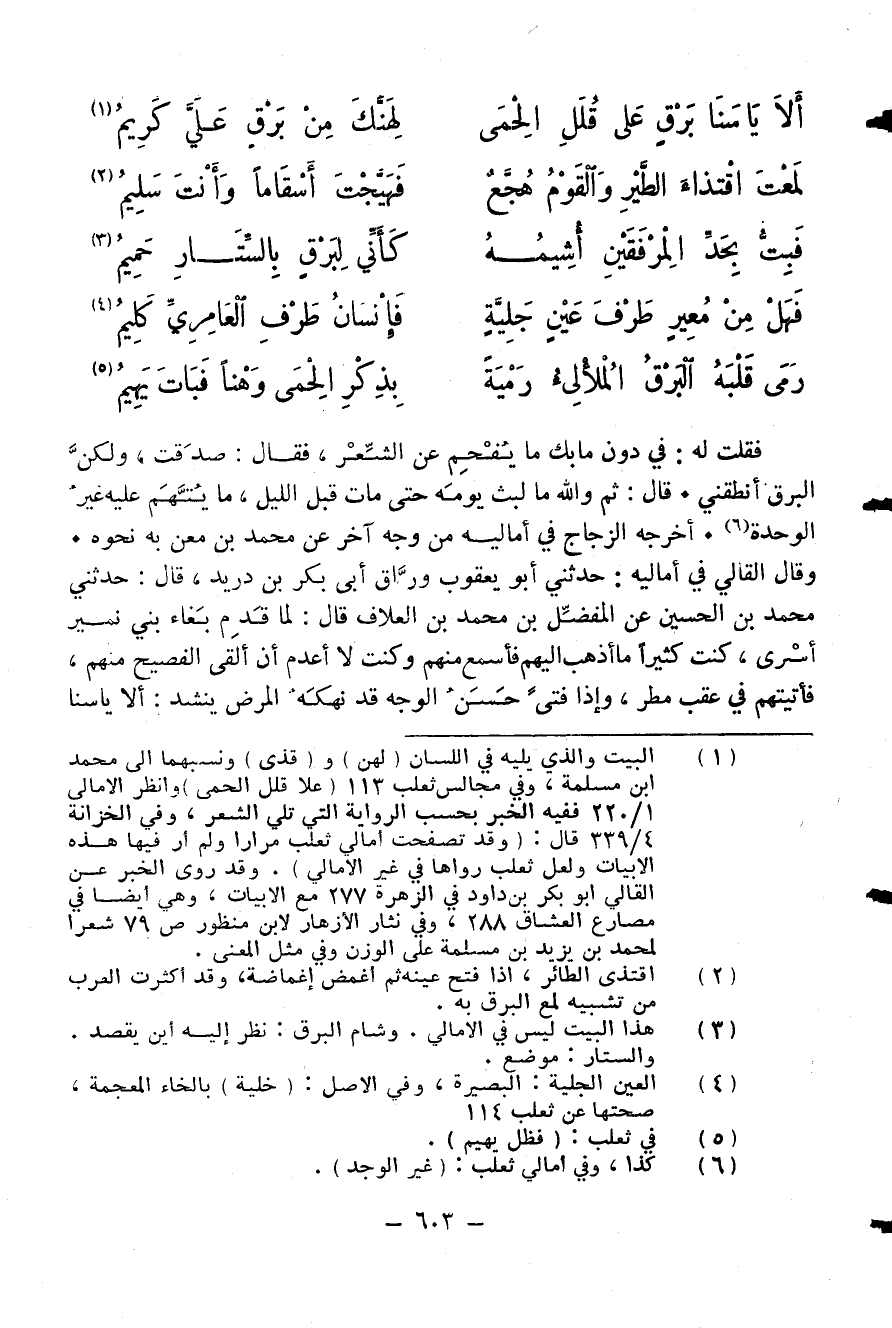 أَلاَ يَا سَنَا بَرْقٍ عَلى قُلَلِ الْحْمَى لِهَنَّكَ مِنْ بَرْقٍ عَلَيَّ كَرِيمُ (١)
لَمعْتَ اقْتذاءَ الطَّيْرِ وَالْقَوْمُ هُجَّعٌ فَهَيَّجْتَ أَسْقَاماً وَأَنْتَ سَلِيمُ (٢)
فَبِتُّ بِحَدِّ الْمِرْفَقَيْنِ أُشِيمُـــهُ كَأَنِّي لِبَرْقٍ بِالسِّتَـــارِ حَمِيمُ (٣)
فَهَلْ مِنْ مُعِيرٍ طَرْفَ عَيْنٍ جَلِيَّةٍ فَإِنْسَانُ طَرْفِ الْعَامِرِيِّ كَلِيمُ (٤)
رَمَى قَلْبَهُ الْبَرْقُ الْمُلأْلِىءُ رَمْيَةً بِذِكْرِ الْحْمَى وَهْناً فَبَاتَ يَهِيمُ (٥)
فقلت له : في دون مابك ما يُفْحِم عن الشِّعْر ، فقــال : صدَقت ، ولكنَّ
البرق أنطقني • قال : ثم والله ما لبث يومَه حتى مات قبل الليل ، ما يُتَّهَم عليه غيرُ
الوحدة (٦) • أخرجه الزجاج في أماليــه من وجه آخر عن محمد بن معن به نحوه •
وقال القالي في أماليه : حدثني أبو يعقوب ورَّاق أبى بكر بن دريد ، قال : حدثني
محمد بن الحسين عن المفضّل بن محمد بن العلاف قال : لما قَدِم بَغاء بني نمــير
أسْرى ، كنت كثيراً ماأذهب اليهم فأسمع منهم وكنت لا أعدم أن ألقى الفصيح منهم ،
فأتيتهم في عقب مطر ، وإذا فتىً حَسَنُ الوجه قد نهكَهُ المرض ينشد : ألا ياسنا
(١) البيت والذي يليه في اللسان ( لهن ) و ( قذى ) ونسبهما الى محمد
ابن مسلمة ، وفي مجالس ثعلب ١١٣ ( علا قلل الحمى ) وانظر الامالي
٢٢٠/١ ففيه الخبر بحسب الرواية التي تلي الشعر ، وفي الخزانة
٣٣٩/٤ قال : ( وقد تصفحت أمالي ثعلب مرارا ولم أر فيها هــذه
الابيات ولعل ثعلب رواها في غير الامالي ) . وقد روى الخبر عــن
القالي ابو بكر بن داود في الزهرة ٢٧٧ مع الابيات ، وهي أيضــا في
مصارع العشاق ٢٨٨ ، وفي نثار الأزهار لابن منظور ص ٧٩ شعراً
لمحمد بن يزيد بن مسلمة على الوزن وفي مثل المعنى .
(٢) اقتذى الطائر ، اذا فتح عينه ثم أغمض إغماضة، وقد أكثرت العرب
من تشبيه لمع البرق به .
(٣) هذا البيت ليس في الامالي . وشام البرق : نظر إليــه أين يقصد .
والستار : موضع .
(٤) العين الجلية : البصيرة ، وفي الاصل : ( خلية ) بالخاء المعجمة ،
صحتها عن ثعلب ١١٤
(٥) في ثعلب : ( فظل يهيم ) .
(٦) كذا ، وفي أمالي ثعلب : ( غير الوجد ) .
– ٦٠٣ –